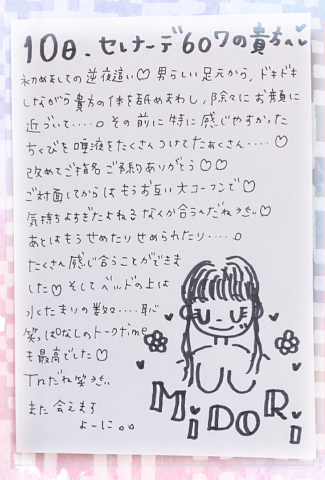 10日.セレナーデ607の貴方へ♥
初めましての逆夜這い♡男らしい足元から,ドキドキ
しながら貴方の体を舐めまわし,除々にお顔に
近づいて‥‥。その前に特に感じやすかった
ちくびを唾液をたくさんつけてたぁくさん‥‥♡
改めてご指名ご予約ありがとう♡♡
ご対面してからはもうお互い大コーフンで♡
気持ちよすぎたよねるなんか合うんだね♡
あとはもうせめたりせめられたり‥‥。
たくさん感じ合うことができま
した♡そしてベルドの上は
水たまりの数々‥‥恥
笑っぱなしのトークtime
も最高でした♡
Tnだね笑
また会えます
よーに。。
MiDORi